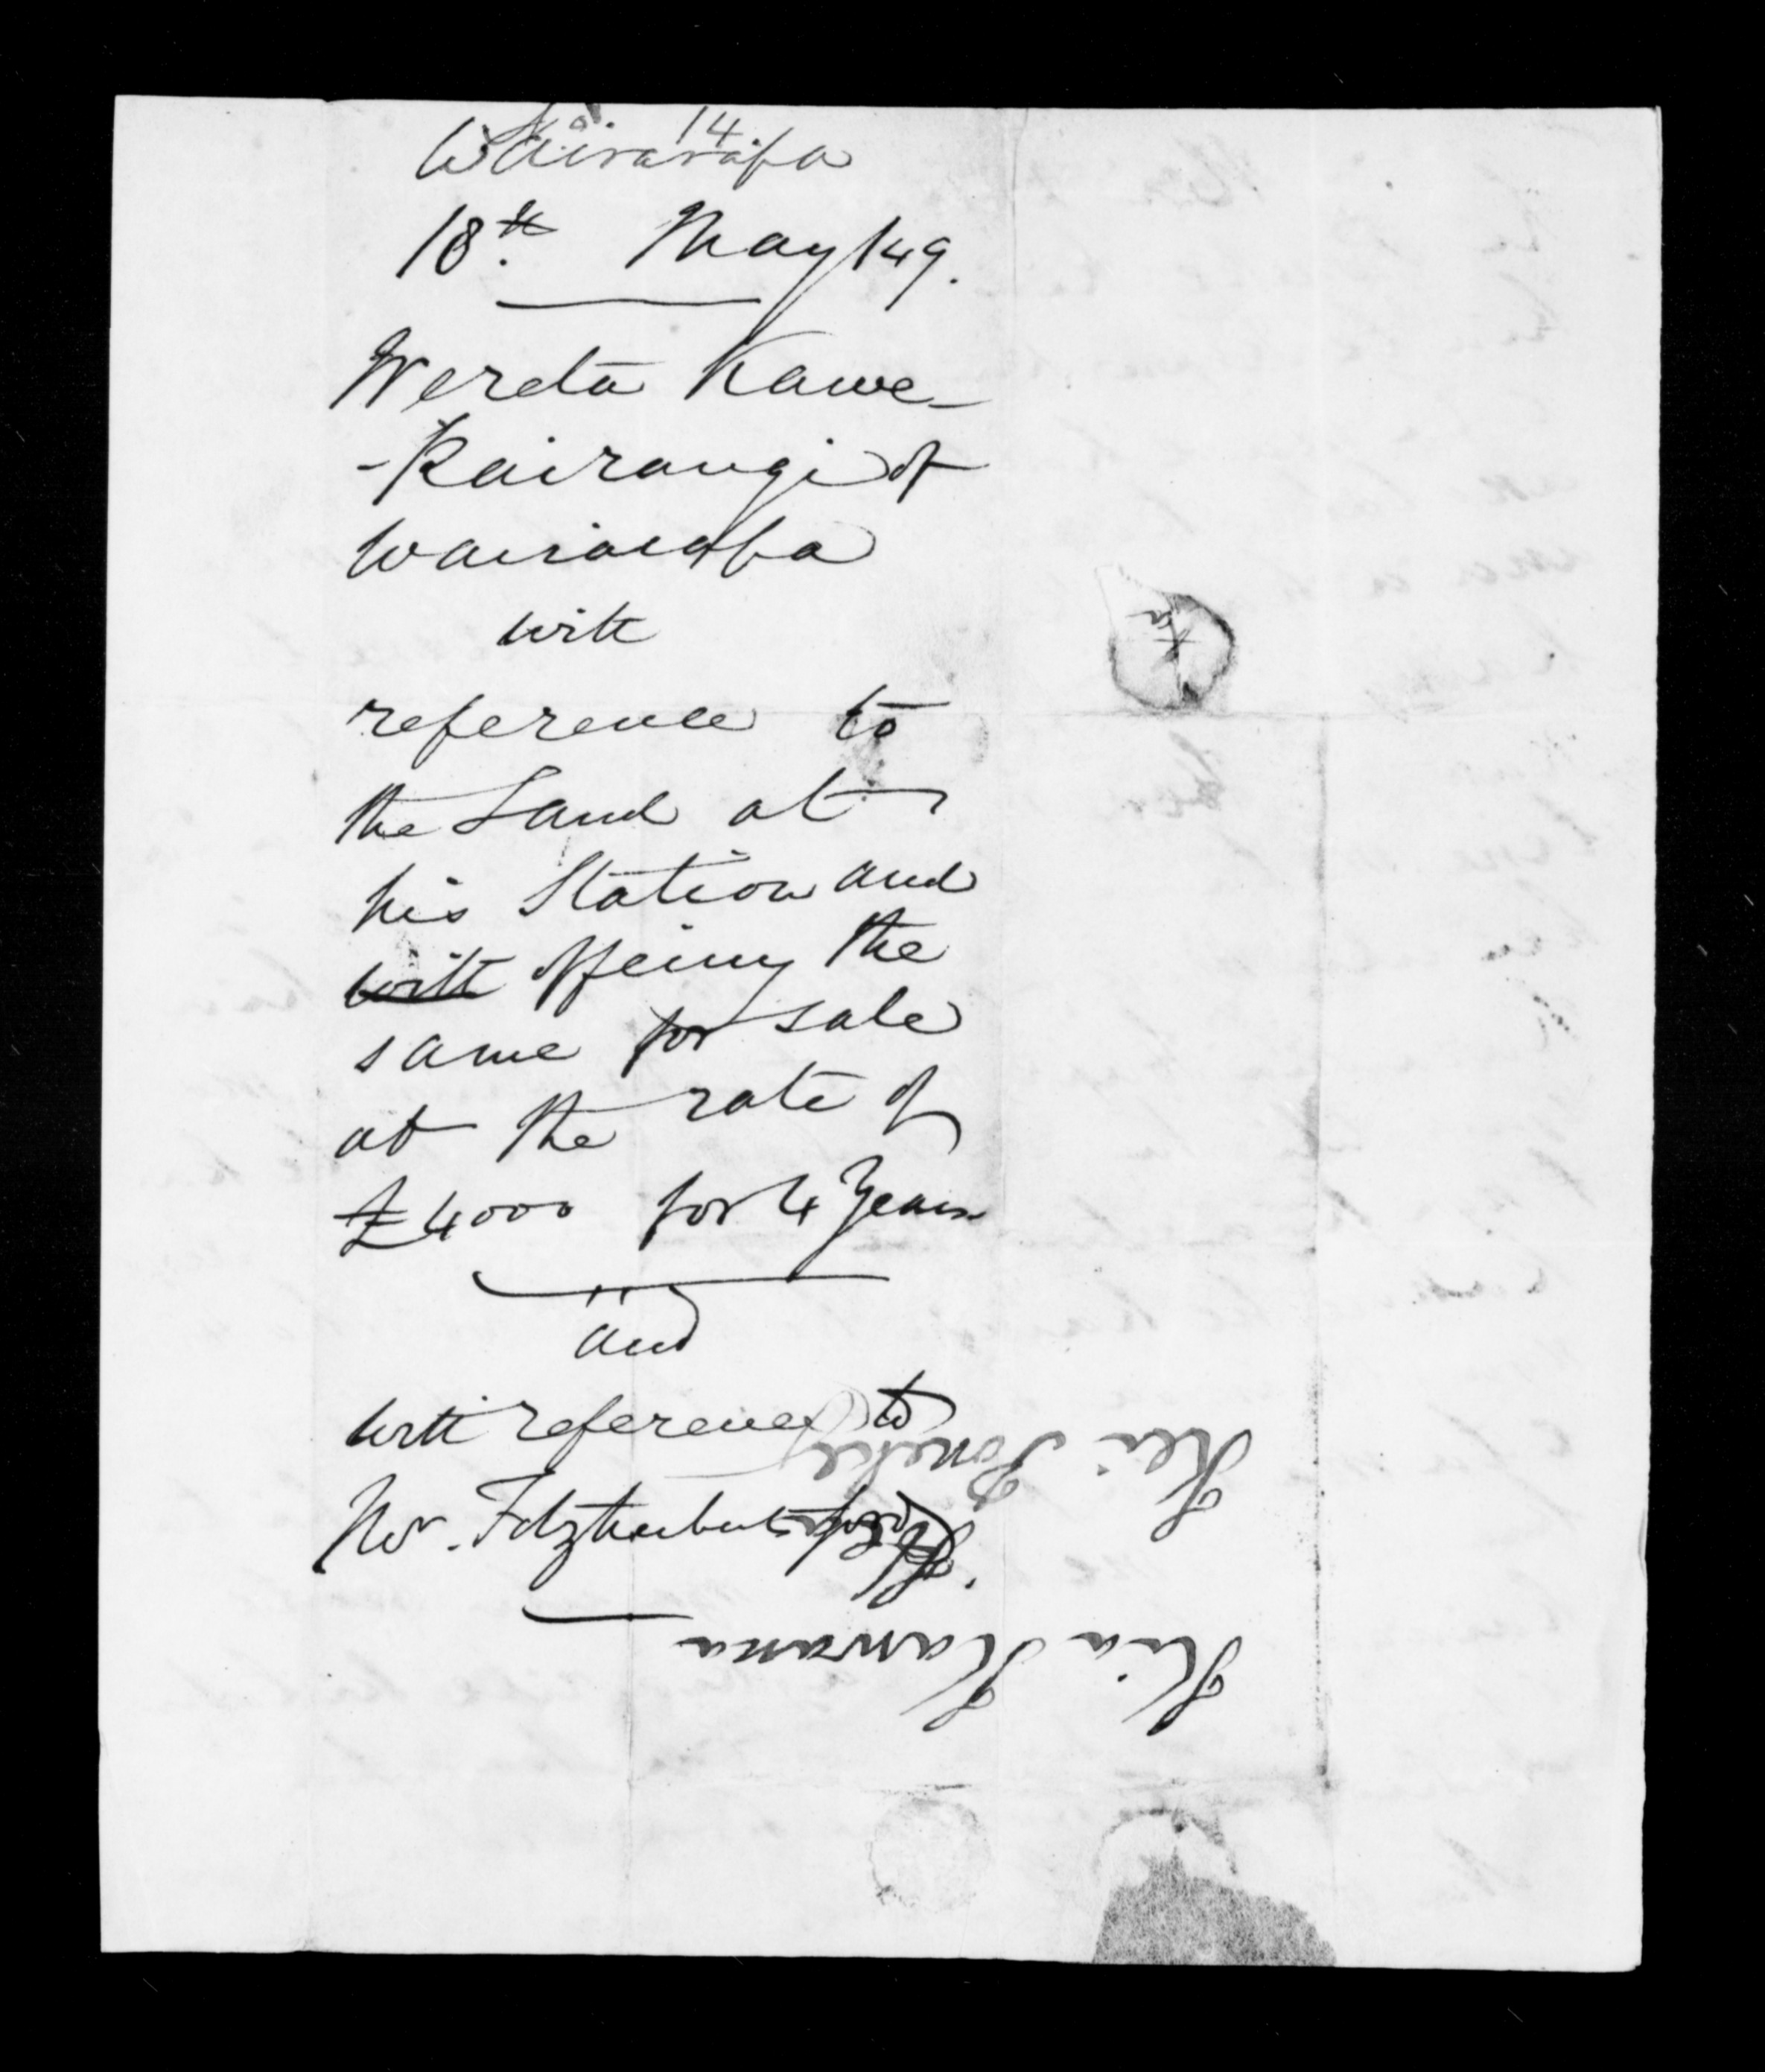 No. 14.
Wairarapa
18th. May /49.
Wereta Kawe-
-Kairangi of
Wairarapa
with
reference to
the Land at
his Station and
with offering the
same for sale
at the rate of
£4000 for 4 Years
and
with reference to
Mr. Fitzherbert
Kia Kawana
Kei Poneke